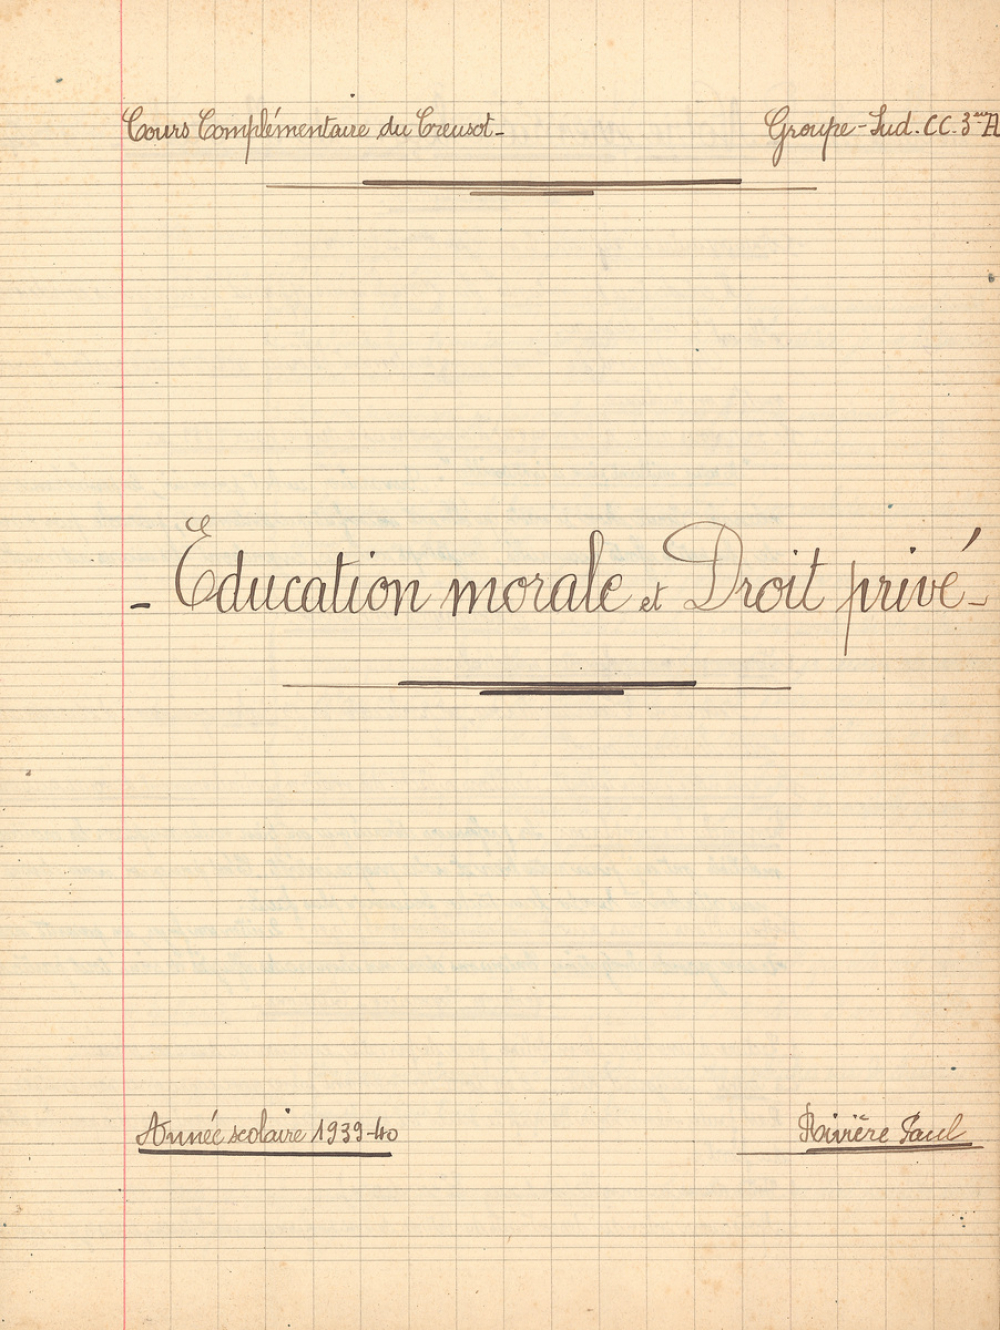 Cours Complémentaire du Creusot_
Groupe-Sud. CC. 3ème A
- Education morale et Droit privé_
Année scolaire 1939-40
Rivière Paul